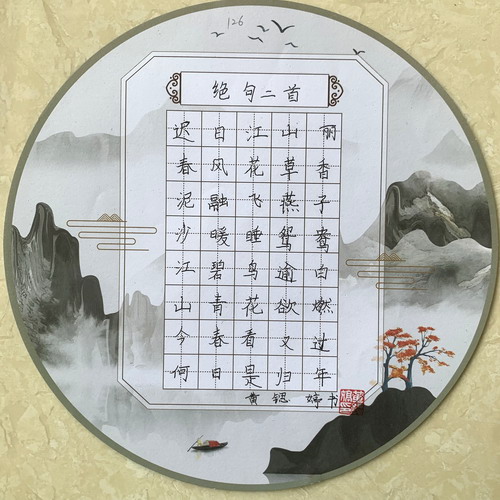 126
绝句二首
迟日江山丽
春风花草香
泥融飞燕子
沙暖睡鸳鸯
江碧鸟逾白
山青花欲燃
今春看又过
何日是归年
黄锶 书